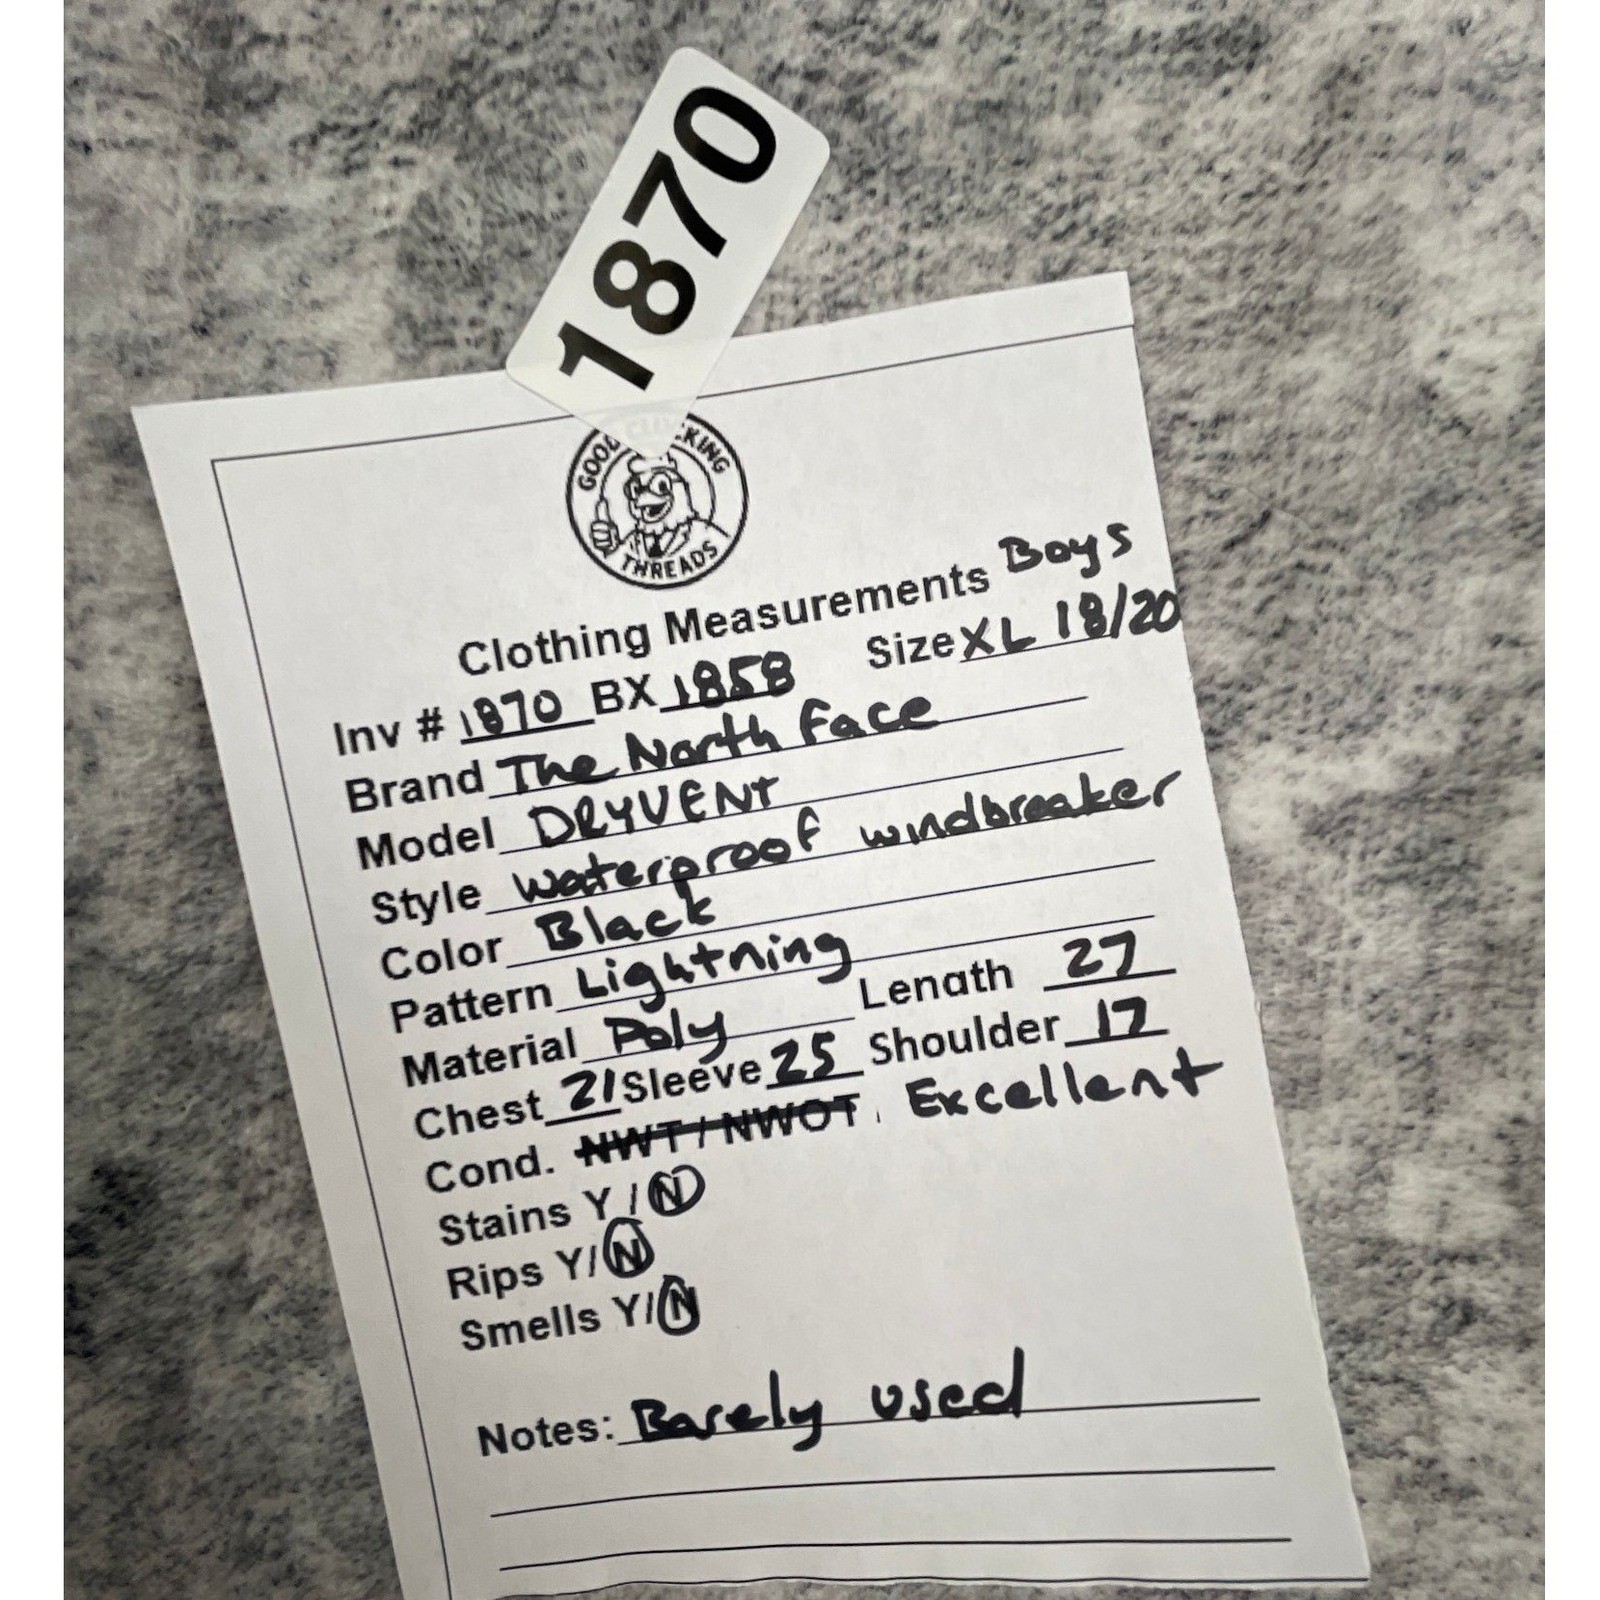 1870
GOOD CLUCKING
THREADS
Boys
Clothing Measurements
Inv # 1870 BX 1858 Size XL 18/20
Brand The North Face
Model DRYVENT
Style waterproof windbreaker
Color Black
Pattern Lightning
Material Poly Length 27
Chest 21 Sleeve 25 Shoulder 17
Cond. NWT / NWOT . Excellent
Stains Y / N
Rips Y/N
Smells Y/N
Notes: Barely used